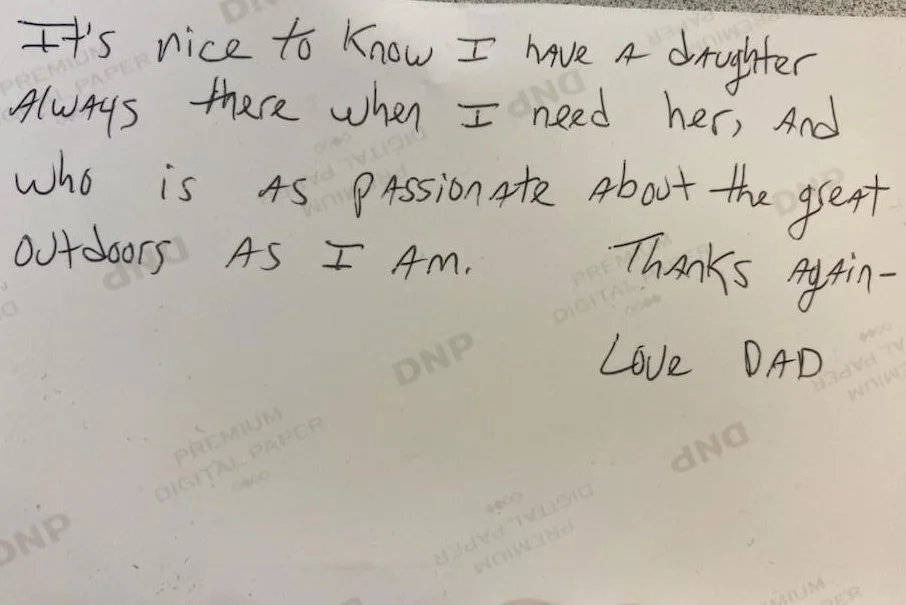 It's nice to know I have a daughter
Always there when I need her, and
who is as passionate about the great
outdoors as I am. Thanks again-
Love DAD
DNP
PREMIUM
DIGITAL PAPER
DNP
PREMIUM
DIGITAL PAPER
DNP
PREMIUM
DIGITAL PAPER
DNP